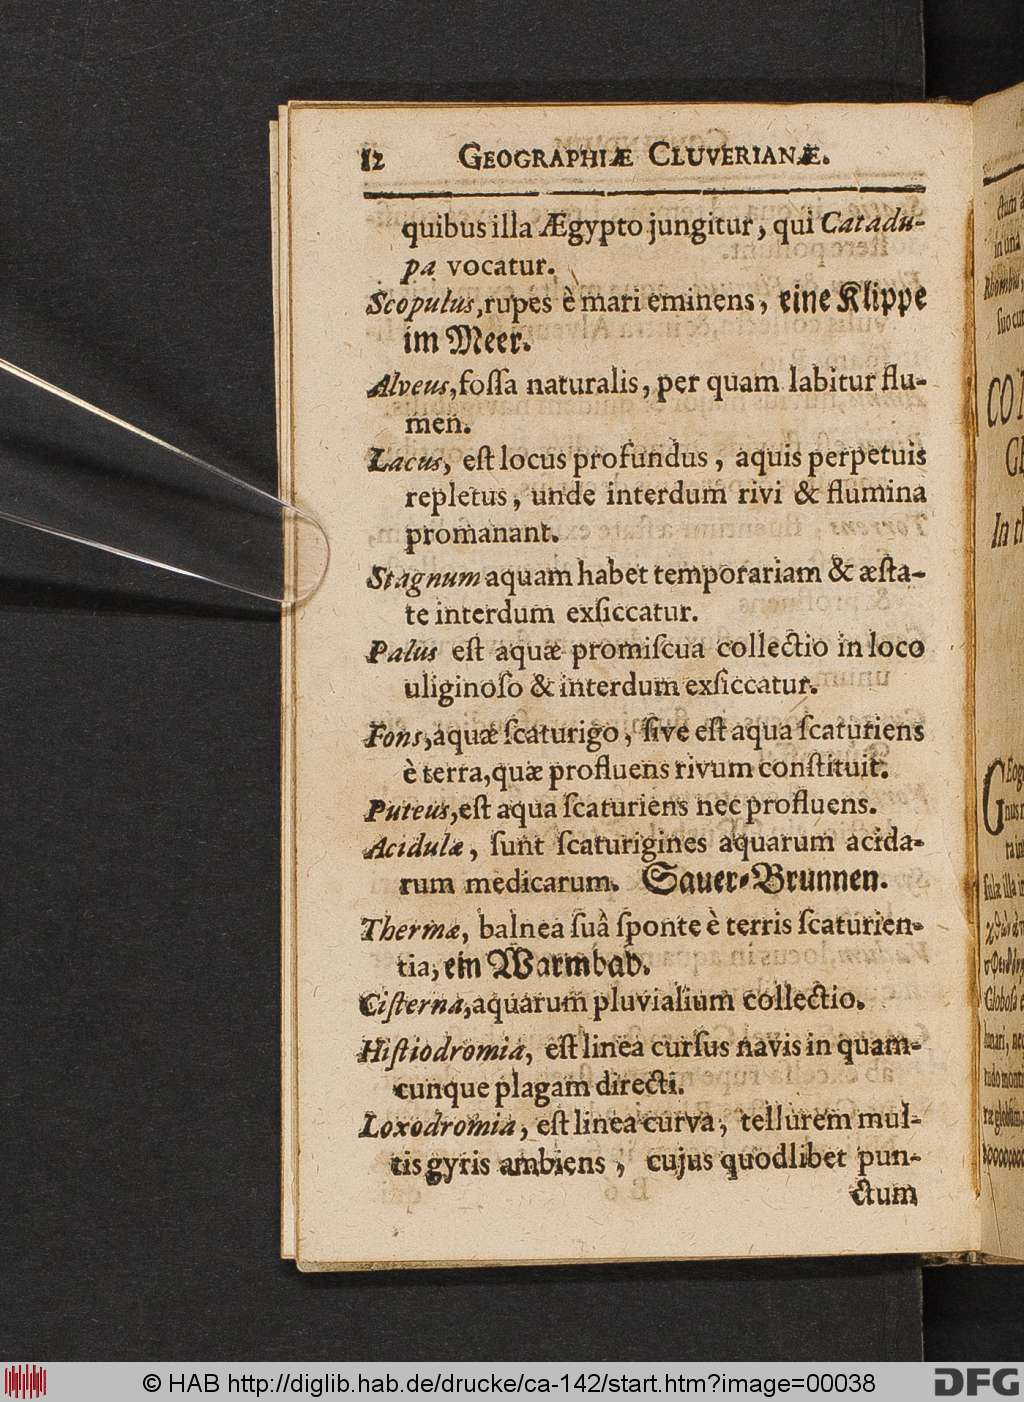 12 GEOGRAPHIÆ CLUVERIANÆ.
quibus illa Ægypto jungitur, qui Catadu-
pa vocatur.
Scopulus, rupes è mari eminens, eine Klippe
im Meer.
Alveus, foſſa naturalis, per quam labitur flu-
men.
Lacus, eſt locus profundus, aquis perpetuis
repletus, unde interdum rivi & flumina
promanant.
Stagnum aquam habet temporariam & æſta-
te interdum exſiccatur.
Palus eſt aquæ promiſcua collectio in loco
uliginoſo & interdum exſiccatur.
Fons, aquæ ſcaturigo, ſive eſt aqua ſcaturiens
è terra, quæ profluens rivum conſtituit.
Puteus, eſt aqua ſcaturiens nec profluens.
Acidulæ, ſunt ſcaturigines aquarum acida-
rum medicarum. Sauer-Brunnen.
Thermæ, balnea ſuâ ſponte è terris ſcaturien-
tia, ein Warmbad.
Ciſterna, aquarum pluvialium collectio.
Hiſtiodromia, eſt linea curſus navis in quam-
cunque plagam directi.
Loxodromia, eſt linea curva, tellurem mul-
tis gyris ambiens, cujus quodlibet pun-
ctum
in una
ſuo cur
In th
© HAB http://diglib.hab.de/drucke/ca-142/start.htm?image=00038
DFG